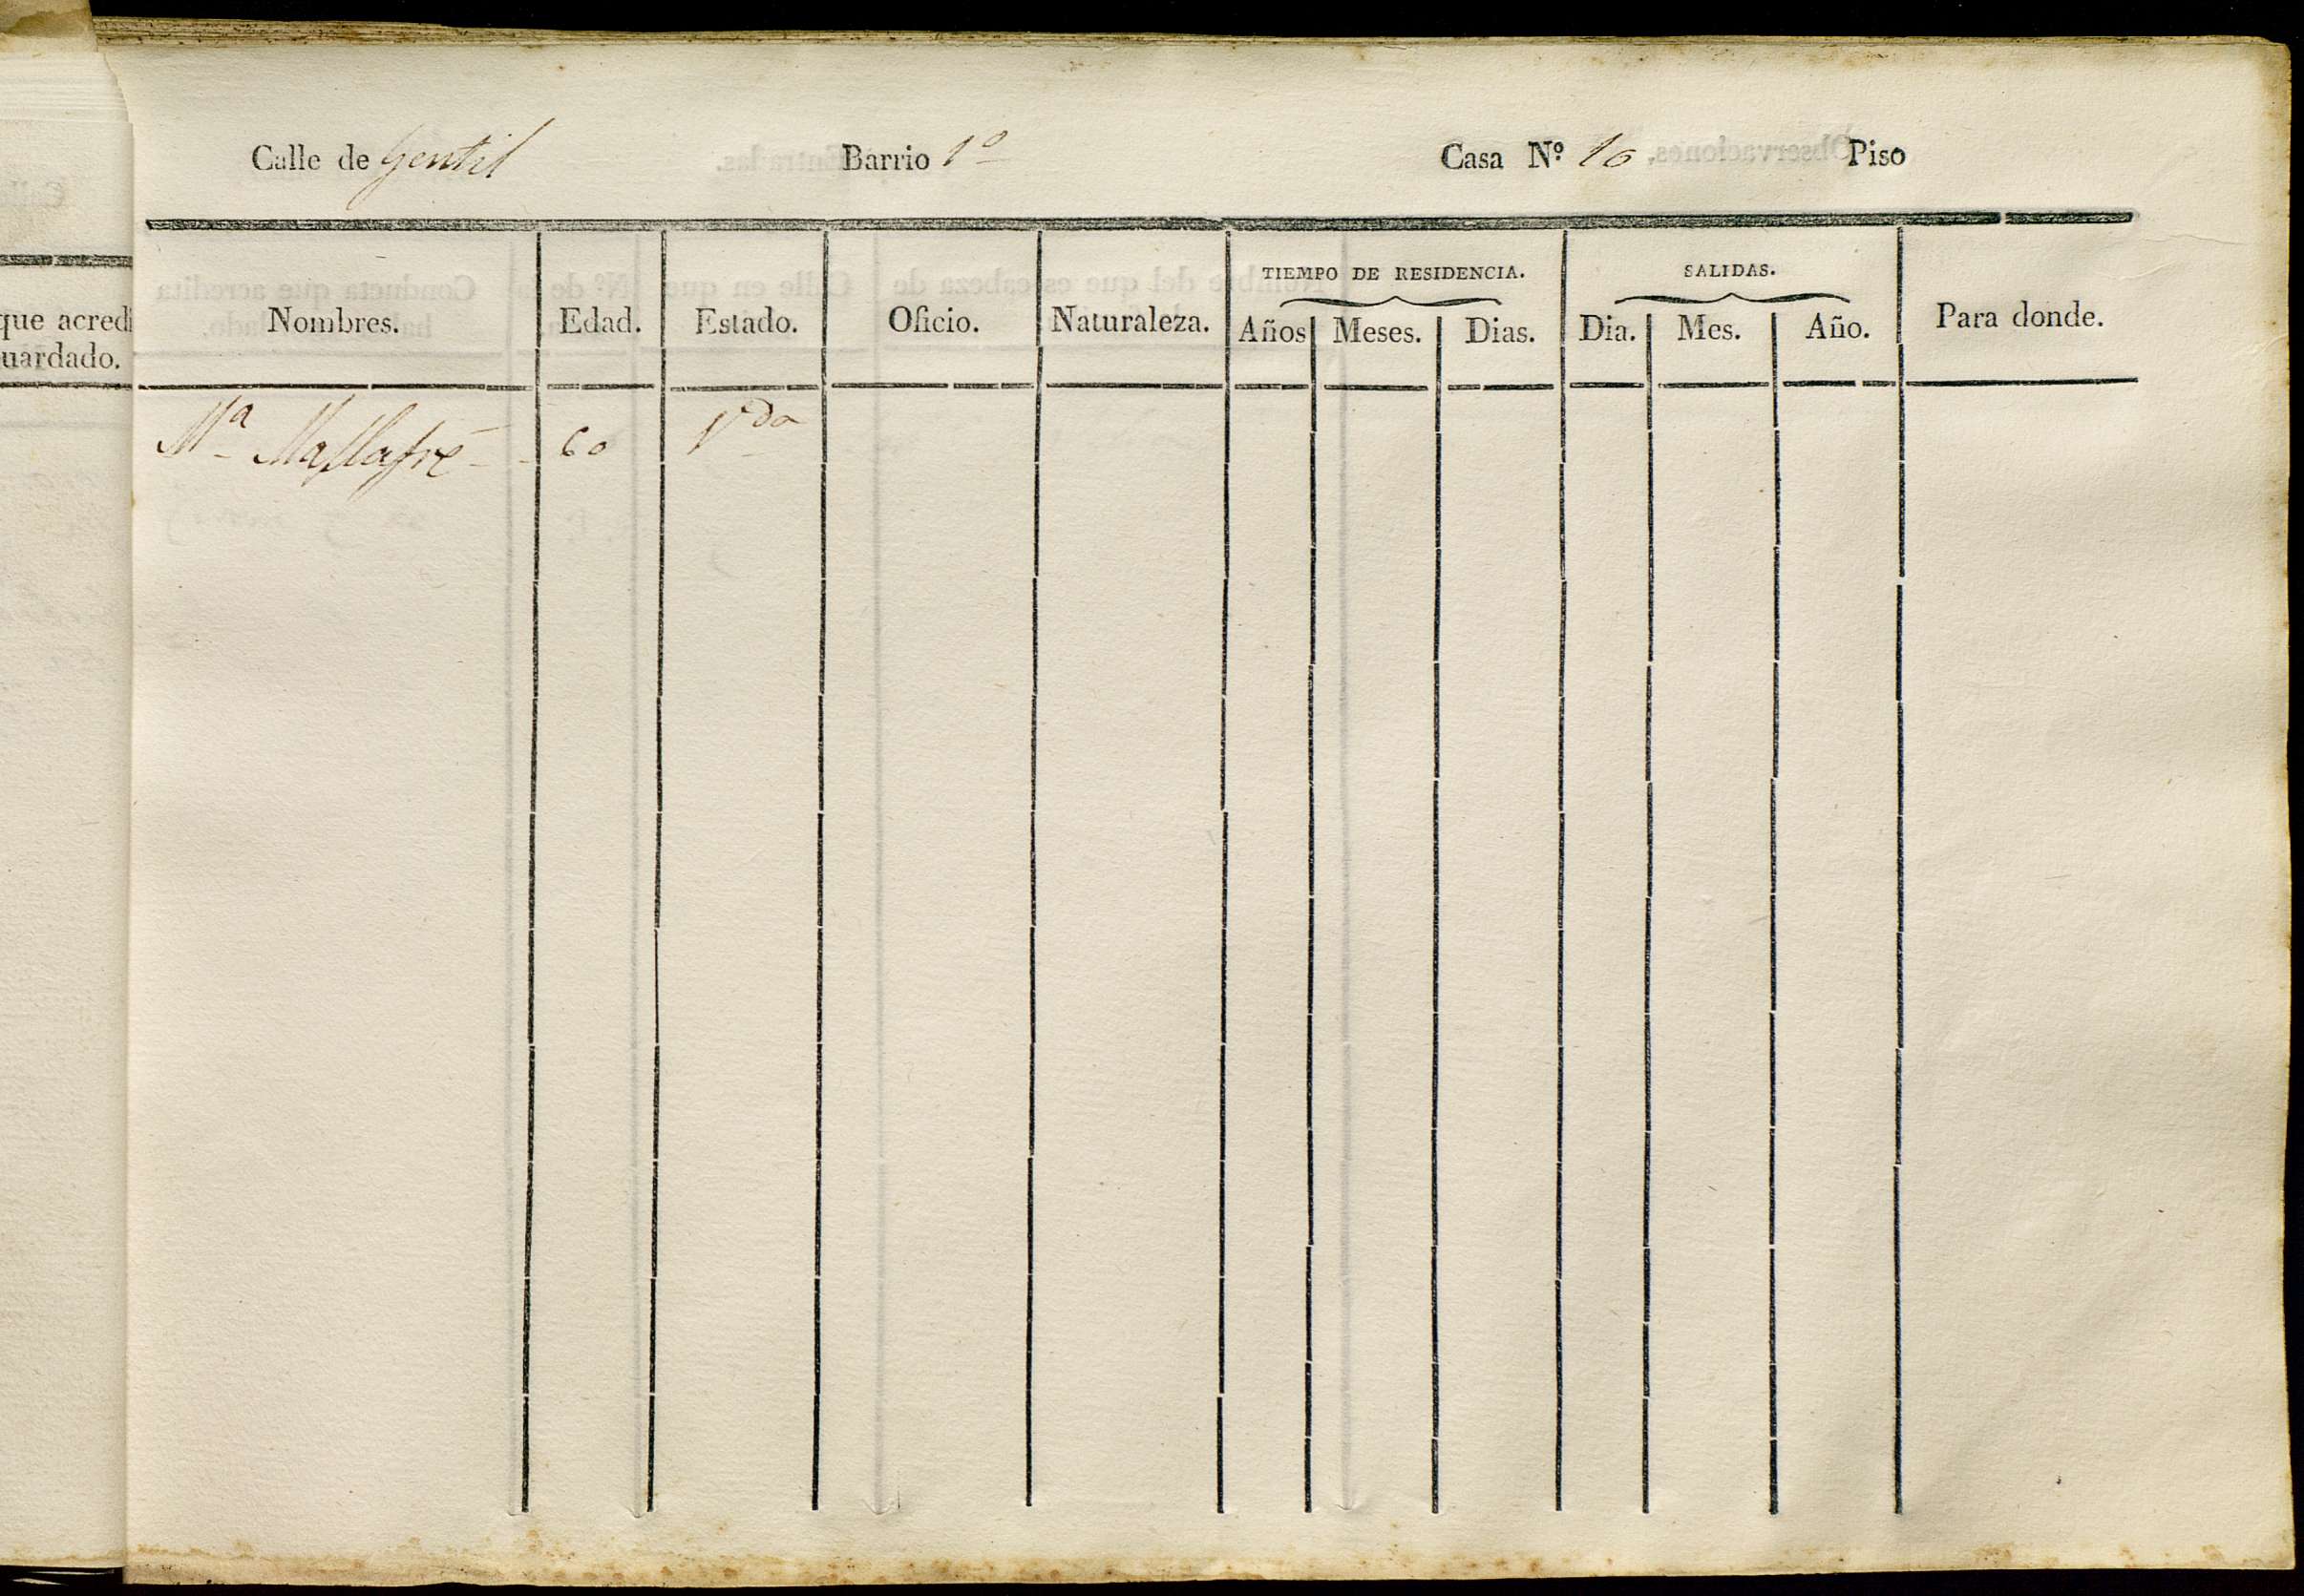 que acredi
uardado.
Calle de Gentil Barrio 1º Casa Nº 10 Piso
TIEMPO DE RESIDENCIA. SALIDAS.
Nombres. Edad. Estado. Oficio. Naturaleza. Años Meses. Dias. Dia. Mes. Año. Para donde.
Mª Mallafré 60 Vda